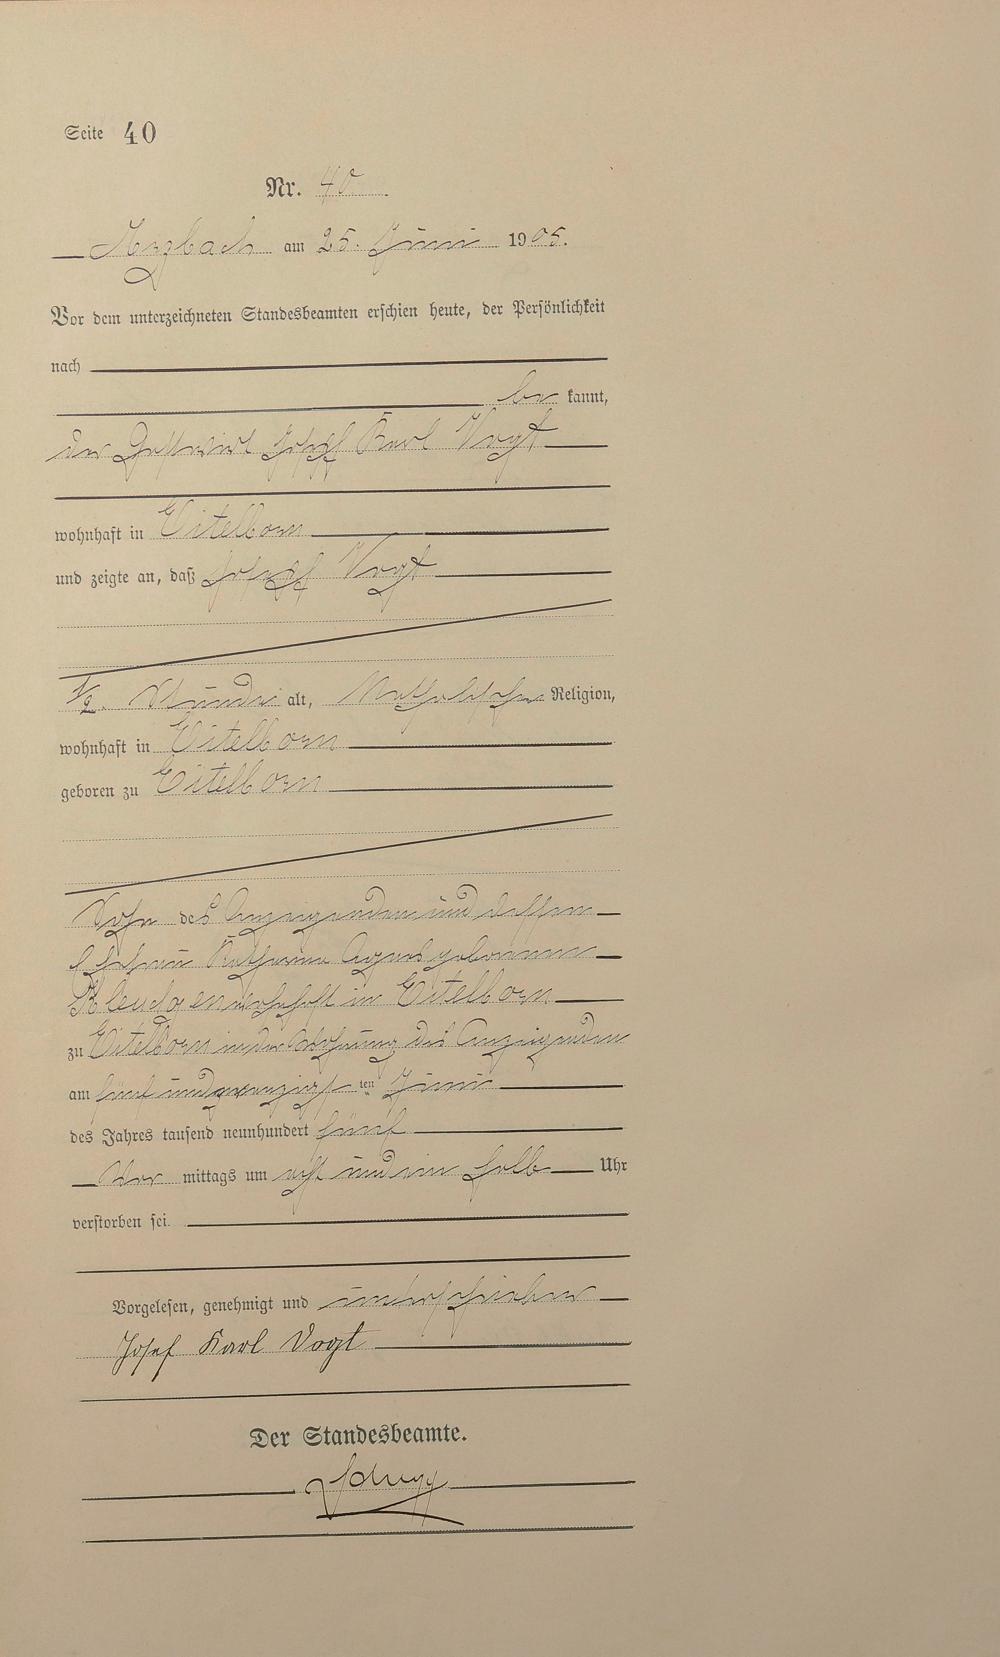 Seite 40
Nr. 40
Arzbach am 25. Juni 1905.
Vor dem unterzeichneten Standesbeamten erschien heute, der Persönlichkeit
nach
be kannt,
der Gastwirt Josef Karl Vogt
wohnhaft in Eitelborn
und zeigte an, daß Josef Vogt
1/2 Stunde alt, katholischer Religion,
wohnhaft in Eitelborn
geboren zu Eitelborn
Sohn des Anzeigenden und dessen
Ehefrau Katharina Agnes geborenen
wohnhaft in Eitelborn
zu Eitelborn in der Wohnung des Anzeigenden
am fünf und zwanzigsten ten Juni
des Jahres tausend neunhundert fünf
Vor mittags um acht und ein halb Uhr
verstorben sei.
Vorgelesen, genehmigt und unterschrieben
Josef Karl Vogt
Der Standesbeamte.